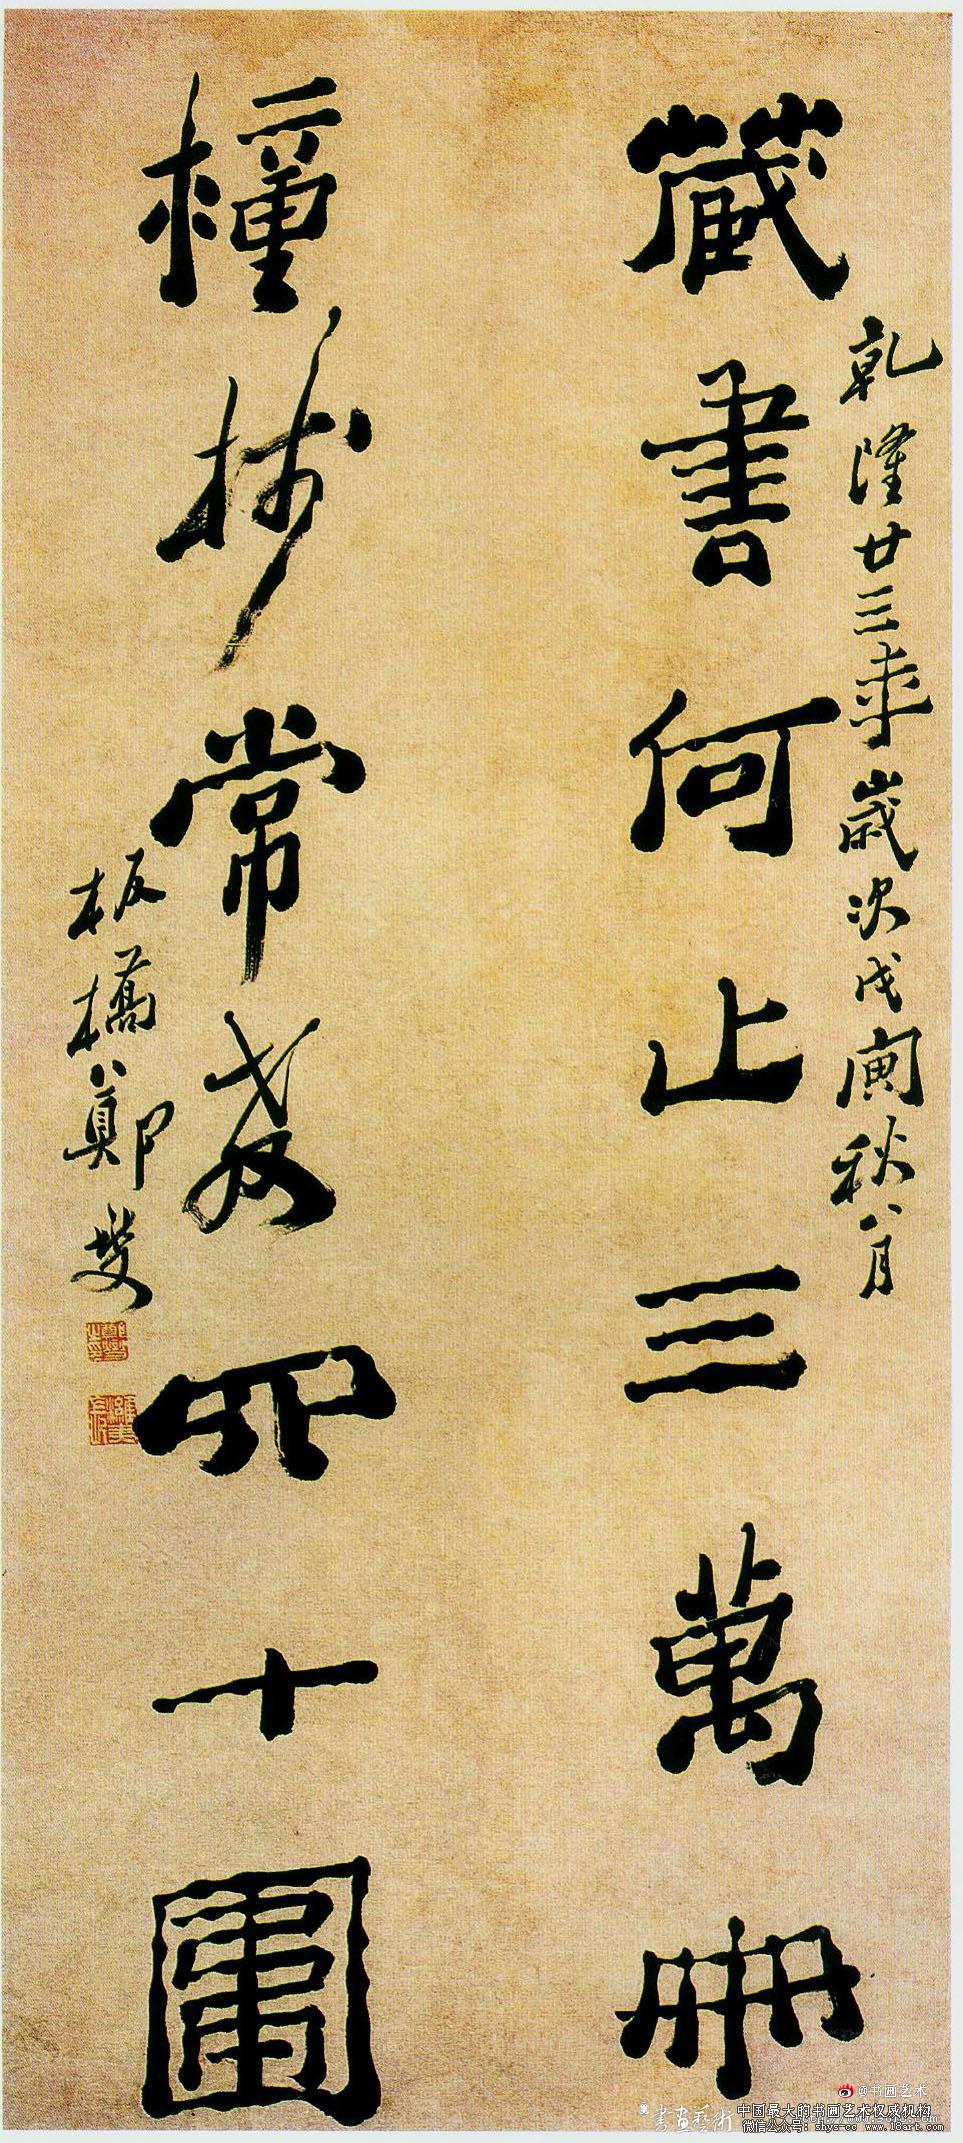 乾隆廿三年歲次戊寅秋八月
藏書何止三萬冊
種樹常教四十圍
板橋鄭燮
@书画艺术
書画藝術
中国最大的书画艺术权威机构
微信公众号: shys-cc www.18art.com